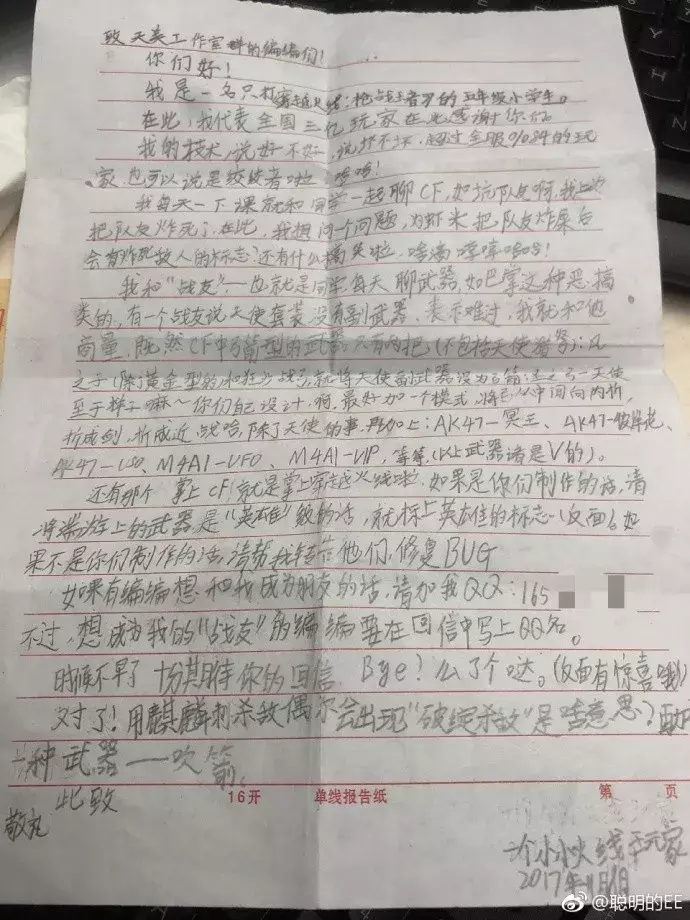 致天美工作室群的编编们！
你们好！
我是一名只打穿越火线：枪战王者 的五年级小学生。
在此，我代表全国三亿玩家在此感谢你们
我的技术，说好不好，说坏不坏，超过全服 的玩
家，也可以说是 者啦，哈哈！
我每天一下课就和同学一起聊CF，如坑队友啊，我上次
把队友炸死了，在此，我想问一个问题，为虾米把队友炸桌后
会有炸死敌人的标志？还有什么搞笑啦，
我和“战友”——也就是同学每天聊武器，如巴掌这种恶搞
类的，有一个战友说天使套装没有副武器，表示难过，我就和他
商量，既然CF中弓箭型的武器只有两把（不包括天使 ）：风
之子（除黄金型的）和狂 战弓，就将天使副武器设为弓箭： 天使
至于样子嘛～你们自己设计，啊，最好加一个模式，将弓从中间向内折，
折成剑，折成近战哈，除了天使的事，再加上：AK47-冥王、AK47-彼岸花、
AK47-UFO、M4A1-UFO、M4A1-VIP，等等，（以上武器诸是V的）。
还有那个 掌上CF，就是掌上穿越火线啦，如果是你们制作的话，请
将端游上的武器是“英雄”级的话，就标上英雄的标志（反面）。如
果不是你们制作的话，请帮我转告他们，修复BUG
如果有编编想和我成为朋友的话，请加我QQ：165
不过，想成为我的“战友”的编编要在回信中写上QQ名。
时候不早了 期待你的回信，Bye！么了个哒。（反面有惊喜哦）
对了！用麒麟刺杀敌偶尔会出现“破绽杀敌”是啥意思？
一种武器——吹箭。
此致
16开 单线报告纸 第 页
敬礼
一个小小火线 玩家
2017年11月 日
@聪明的EE